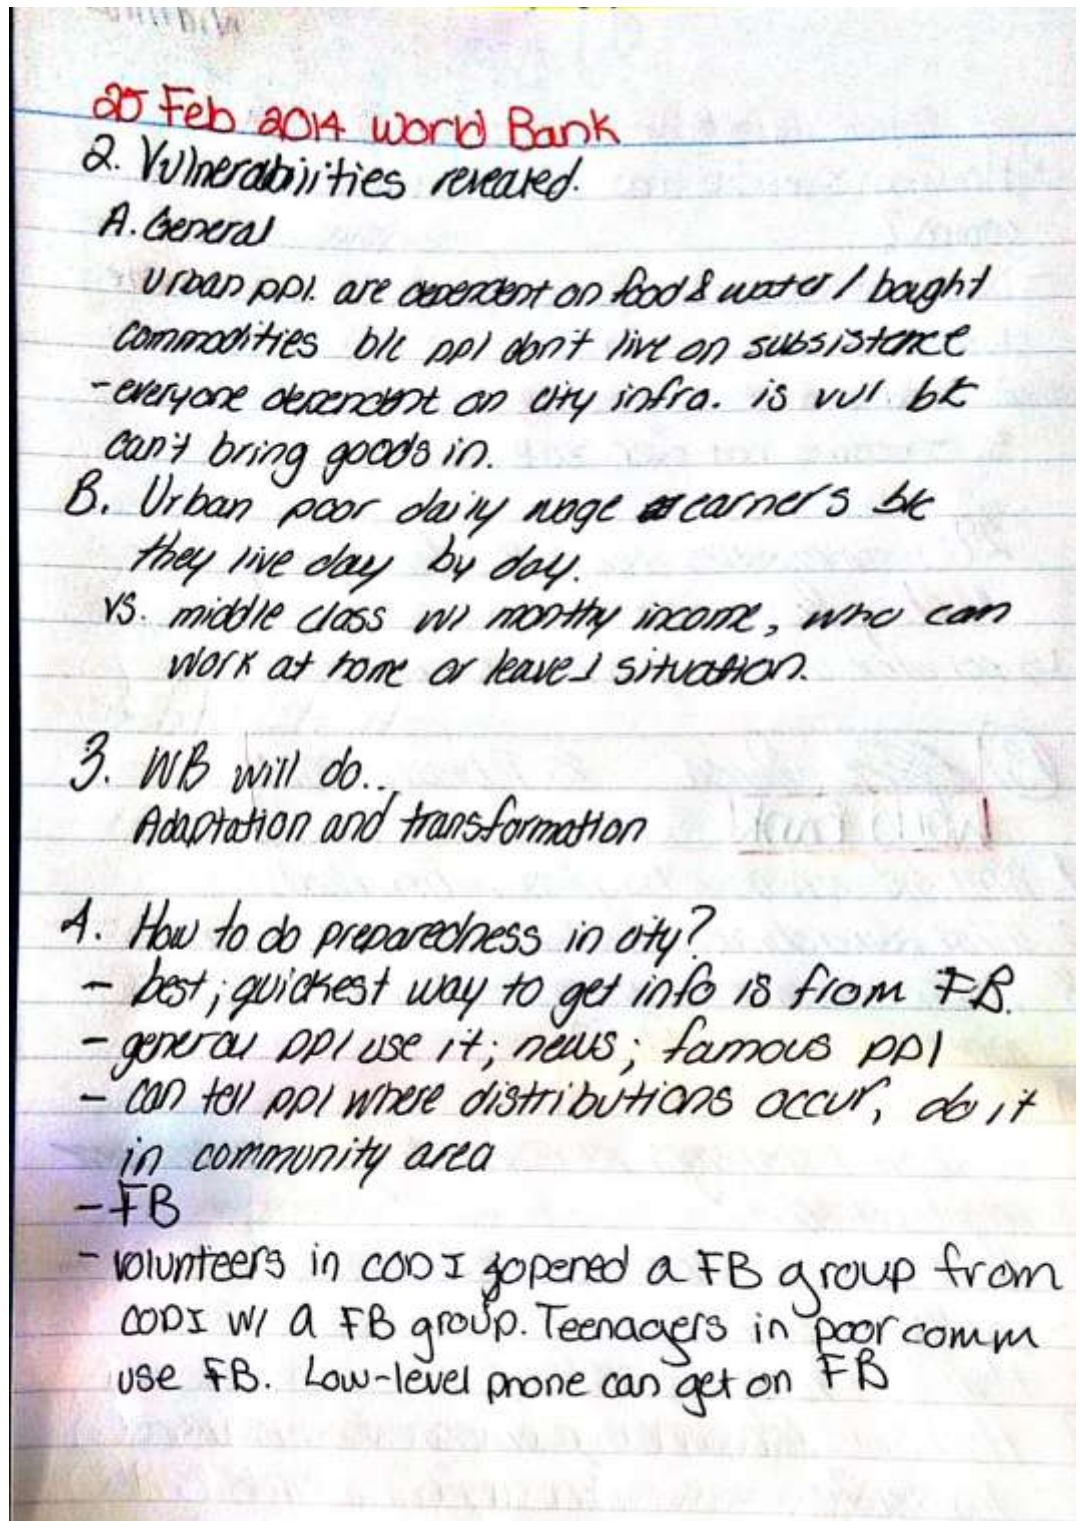 25 Feb 2014 World Bank
2. Vulnerabilities revealed.
A. General
Urban ppl. are dependent on food & water / bought
commodities b/c ppl don't live on subsistence
- everyone dependent on city infra. is vul b/c
can't bring goods in.
B. Urban poor daily wage earners b/c
they live day by day.
vs. middle class w/ monthy income, who can
work at home or leave situation.
3. WB will do..
Adaptation and transformation
4. How to do preparedness in city?
- best; quickest way to get info is from FB.
- general ppl use it; news; famous ppl
- can tell ppl where distributions occur, do it
in community area
- FB
- volunteers in CODI opened a FB group from
CODI w/ a FB group. Teenagers in poor comm
use FB. Low-level phone can get on FB